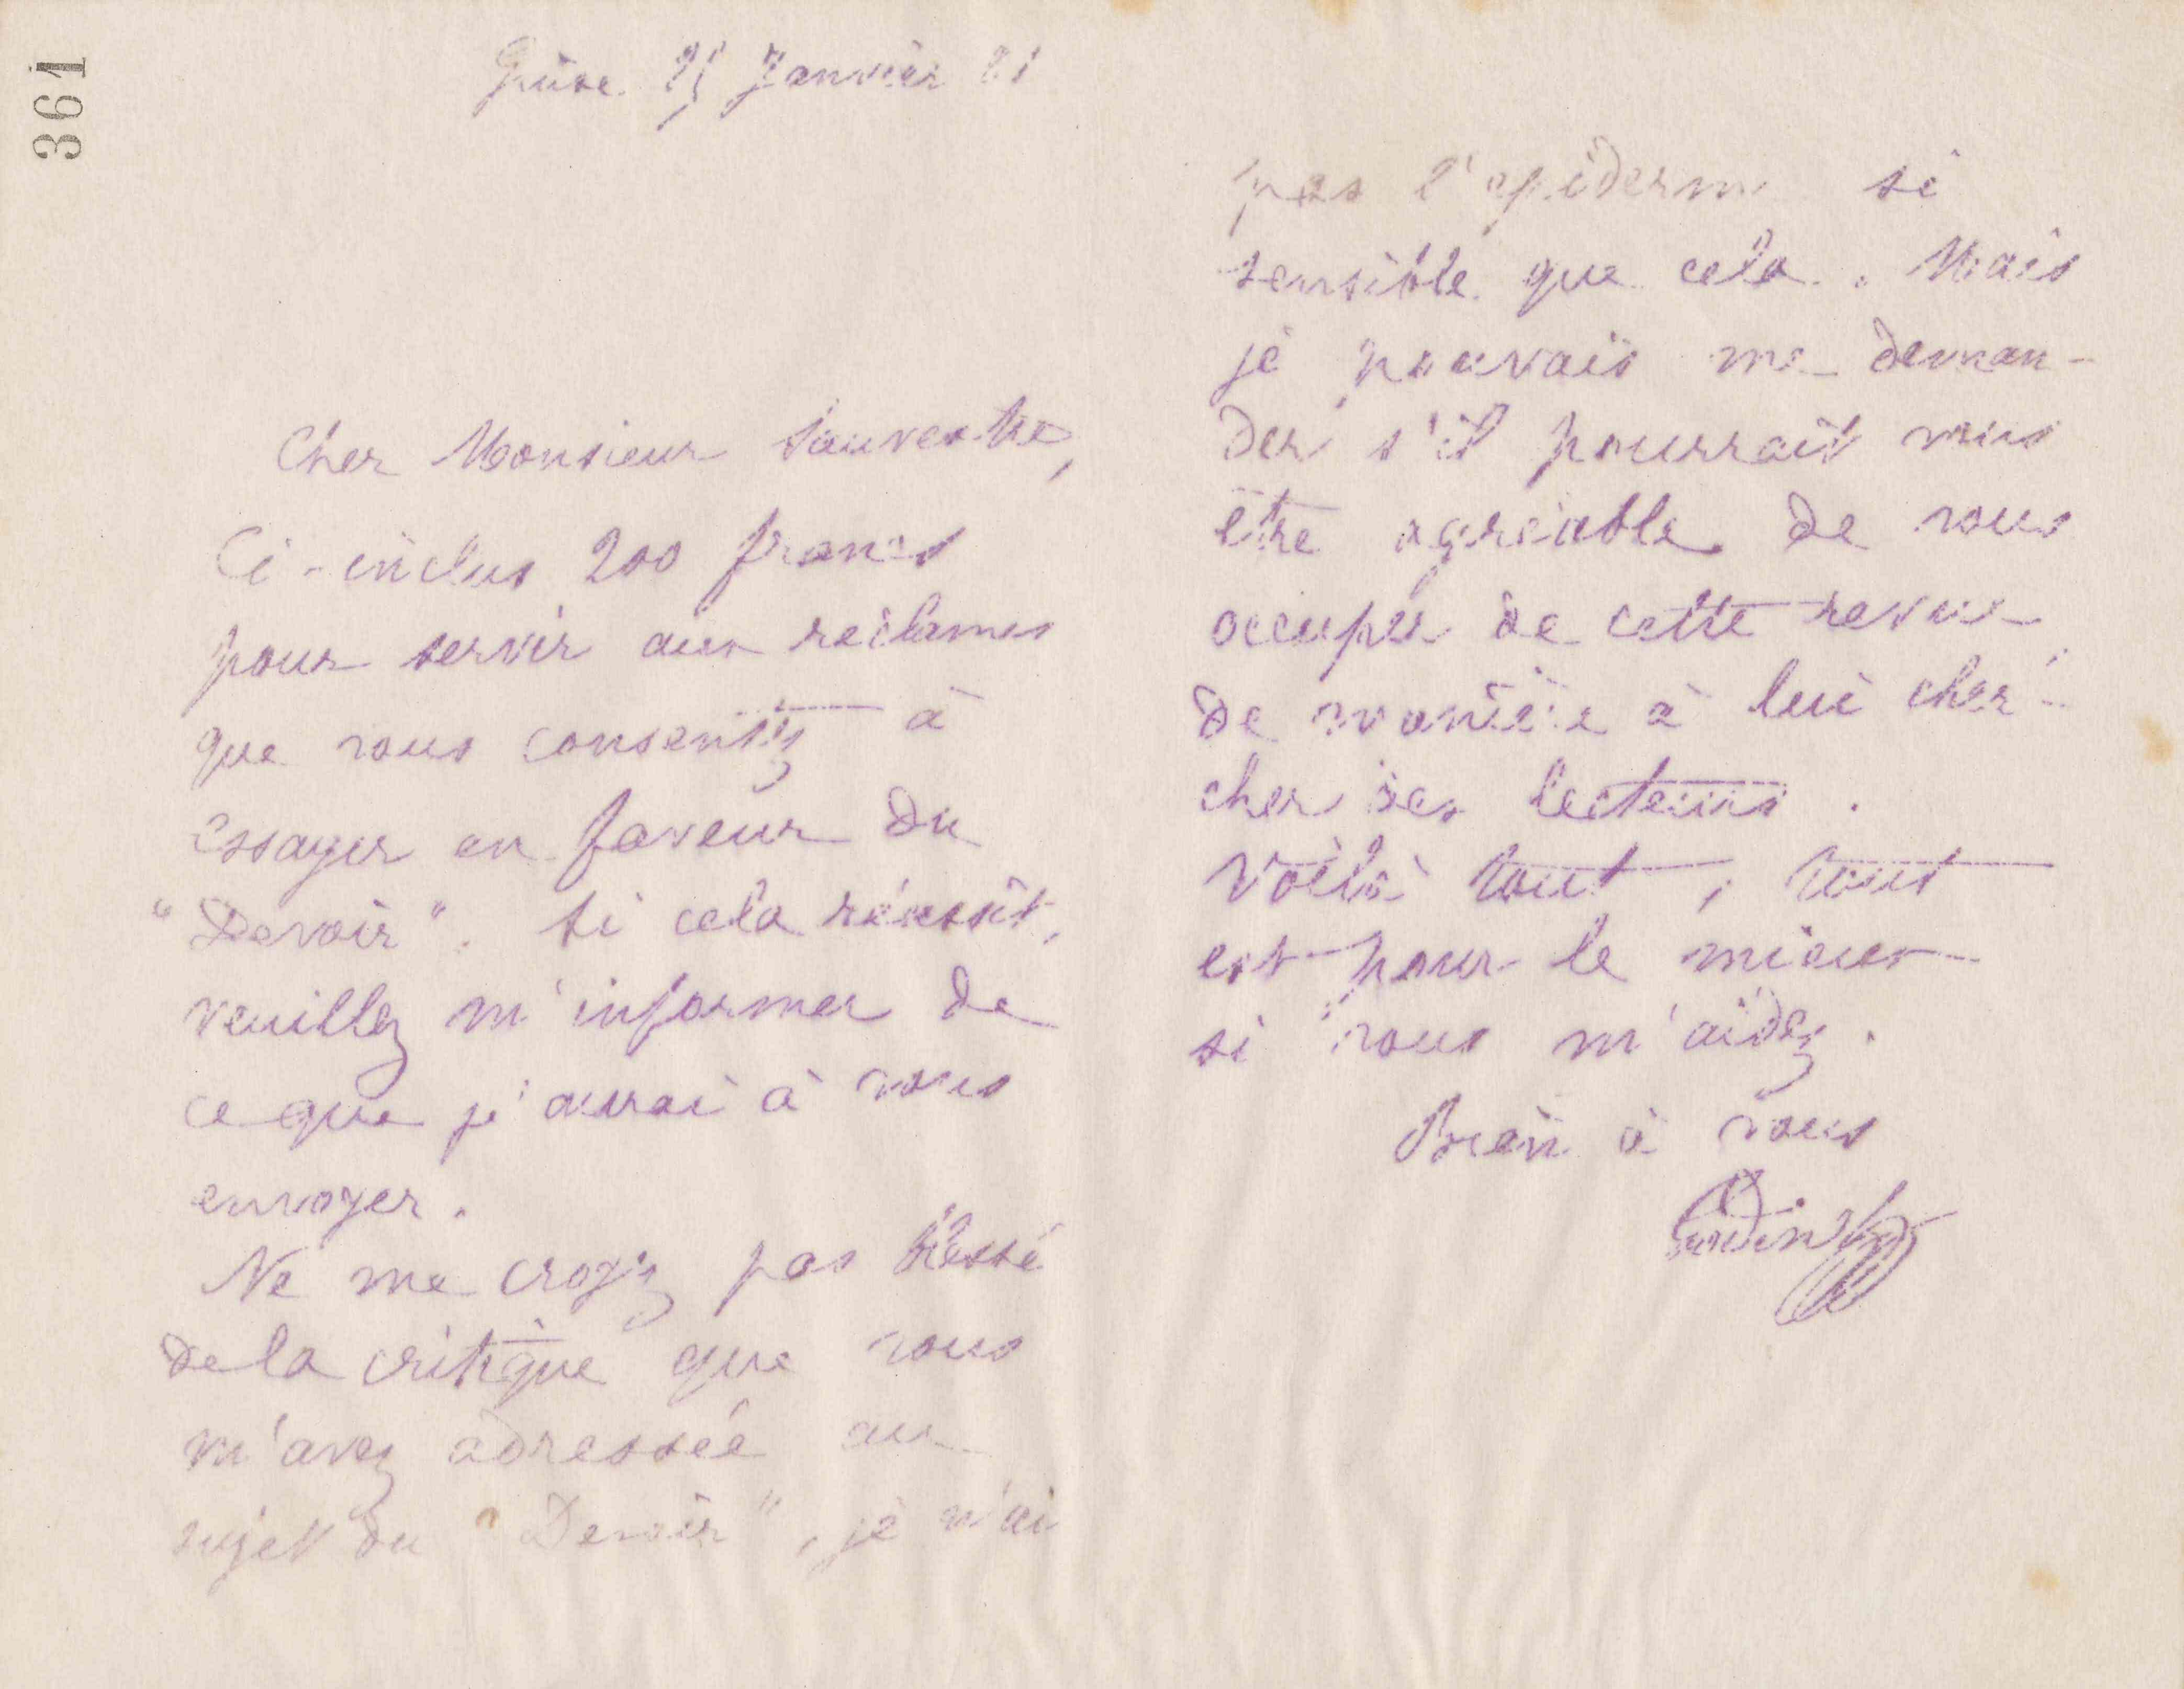 361
Guise 25 Janvier 81
Cher Monsieur Sauvestre,
Ci-inclus 200 francs
pour servir aux réclames
que vous consentez à
essayer en faveur du
"Devoir". Si cela réussit,
veuillez m'informer de
ce que j'aurai à vous
envoyer.
Ne me croyez pas blessé
de la critique que vous
m'avez adressée au
sujet du "Devoir", je n'ai
pas l'epiderme si
sensible que cela. Mais
je pouvais me deman-
der s'il pourrait vous
être agréable de vous
occuper de cette revue
de manière à lui cher-
cher des lecteurs.
Voilà tout, tout
est pour le mieux
si vous m'aidez.
Bien à vous
Godin